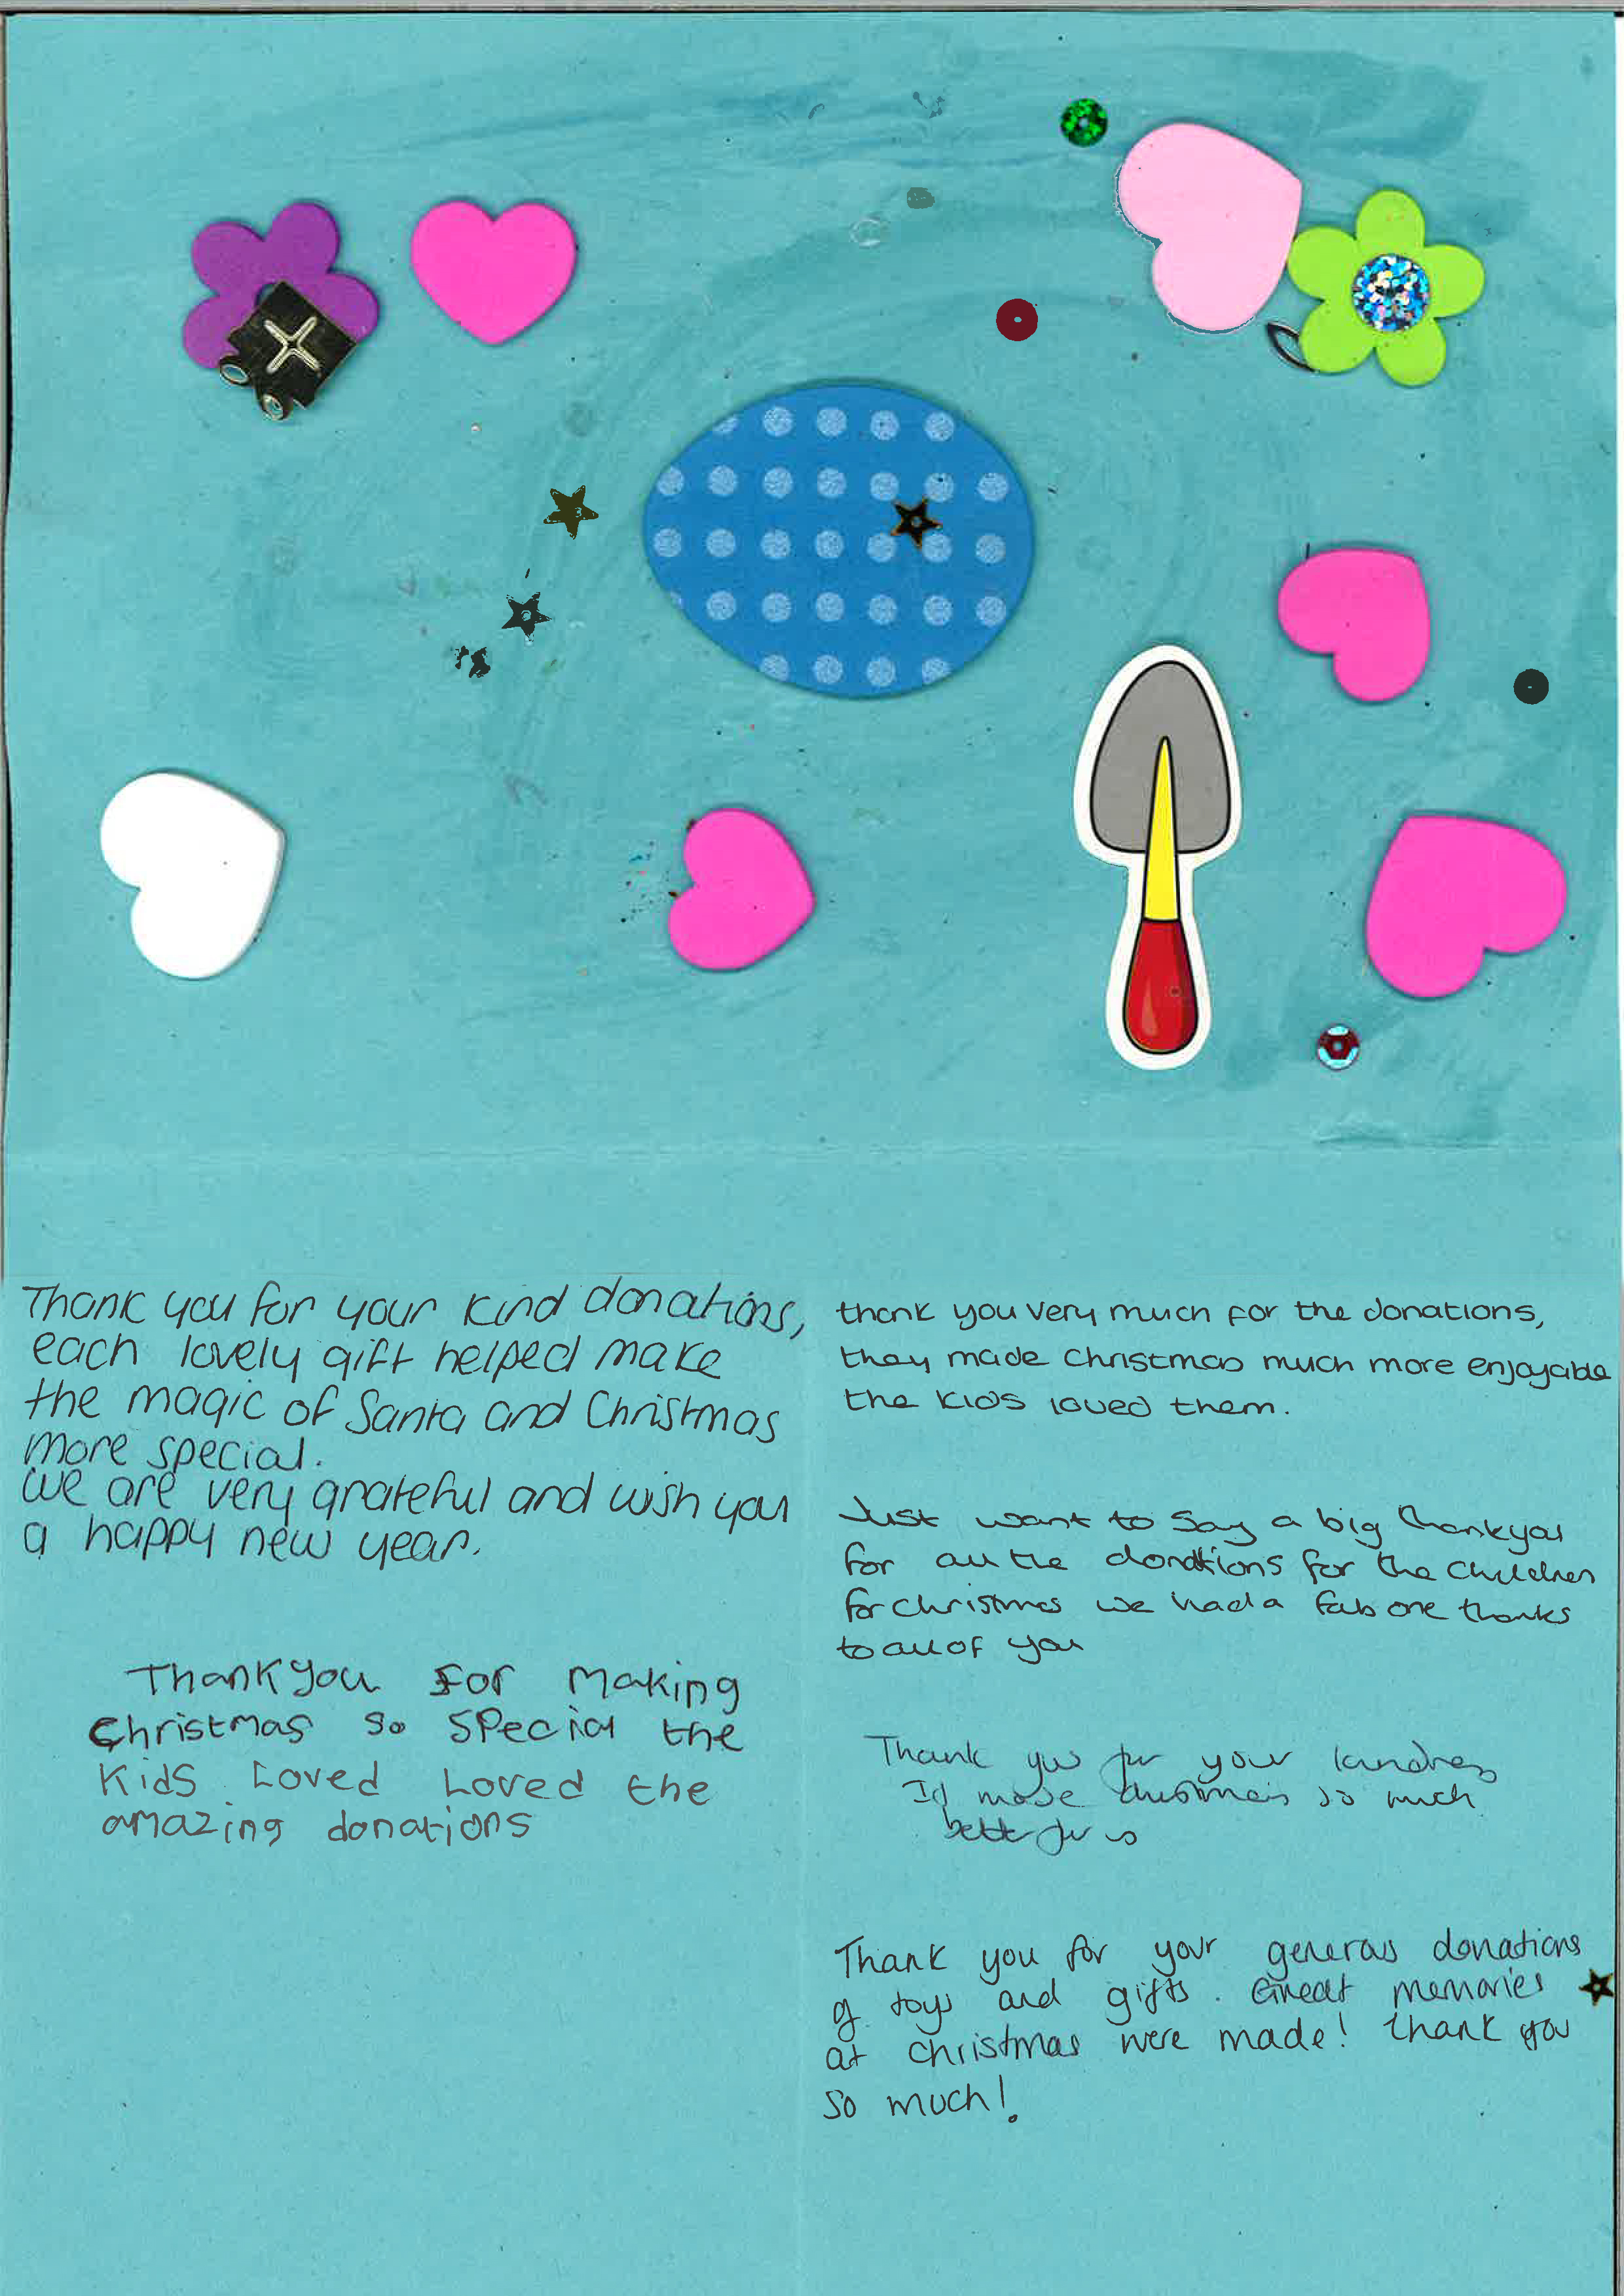 Thank you for your kind donations,
each lovely gift helped make
the magic of Santa and Christmas
more special.
We are very grateful and wish you
a happy new year.
Thankyou for Making
Christmas so special the
Kids Loved Loved the
amazing donations
thank you very much for the donations,
they made christmas much more enjoyable
the kids loved them.
Just want to say a big thankyou
for all the donations for the children
for christmas we had a fab one thanks
to all of you
Thank you for your kindness
made christmas so much
better for us
Thank you for your generous donations
of toys and gifts. Great memories
at christmas were made! thank you
so much!